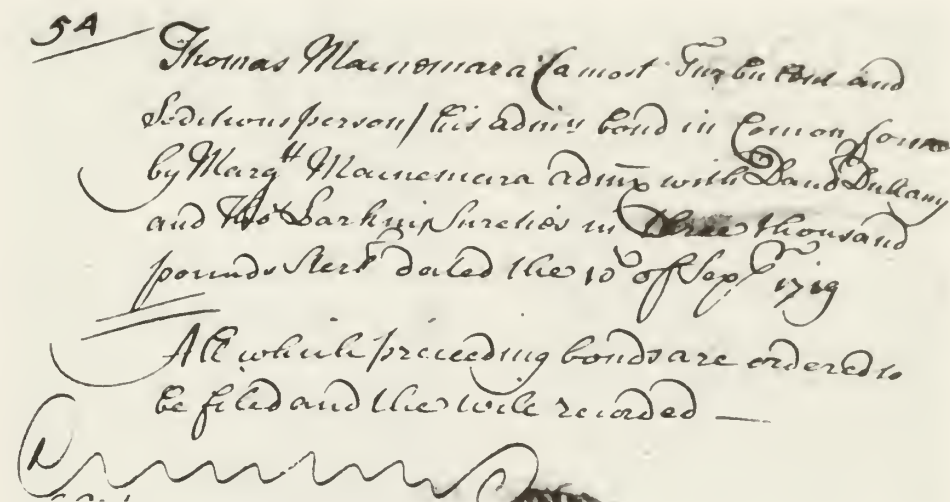 54
Thomas Macnemara (a most Turbulent and
Seditious person / his admn bond in Com̄on form
by Margtt Macnemara admx with Danll Dullany
and Thos Larkin Sureties in three thousand
pounds Sterl dated the 10th of Sepr 1719
All which preceeding bonds are ordered to
be filed and the will recorded —